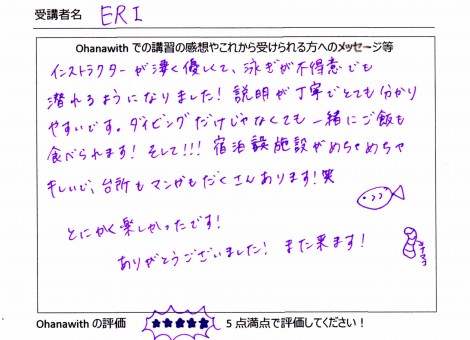 受講者名 ERI
Ohanawith での講習の感想やこれから受けられる方へのメッセージ等
インストラクターが凄く優しくて、泳ぎが不得意でも
潜れるようになりました！説明が丁寧でとても分かり
やすいです。ダイビングだけじゃなくても一緒にご飯も
食べられます！そして！！！宿泊設施設がめちゃめちゃ
キレイで、台所もマンガもたくさんあります！笑
とにかく楽しかったです！
ありがとうございました！また来ます！
Ohanawith の評価 ★★★★★ 5 点満点で評価してください！